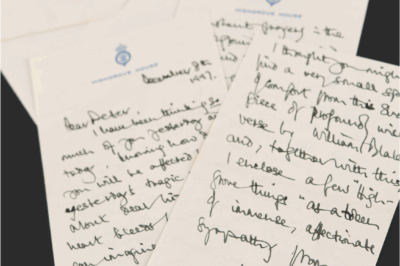 HIGHGROVE HOUSE
December 8th
1997.
Dear Peter.
I have been thinking so
much of you yesterday and
today. Knowing how
you will be affected
yesterday's tragic
about dear
heart bleeds
can imagine
HIGHGROVE HOUSE
prayers is the
I thought you might
find a very small
of comfort from this
piece of profound
verse by William Blake
and, together with this
I enclose a few High-
grove things "as a token
of immense, affectionate
sympathy from